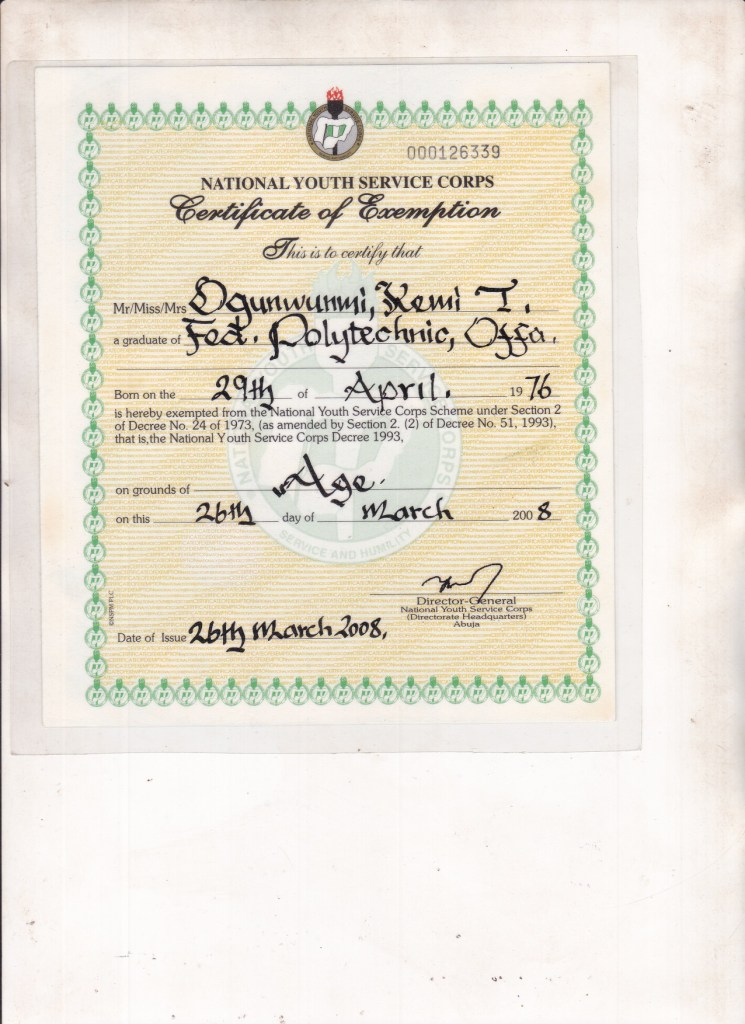 000126339
NATIONAL YOUTH SERVICE CORPS
Certificate of Exemption
This is to certify that
Mr/Miss/Mrs Ogunwunmi, Kemi T.
a graduate of Fed. Polytechnic, Offa.
Born on the 29th of April. 1976
is hereby exempted from the National Youth Service Corps Scheme under Section 2
of Decree No. 24 of 1973, (as amended by Section 2. (2) of Decree No. 51, 1993),
that is, the National Youth Service Corps Decree 1993,
on grounds of "Age.
on this 26th day of March 2008
SERVICE AND HUMILITY
Director-General
National Youth Service Corps
(Directorate Headquarters)
Abuja
Date of Issue 26th March 2008.